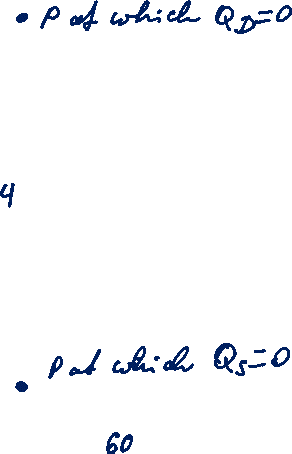 • P at which Q_D=0
4
• P at which Q_S=0
60